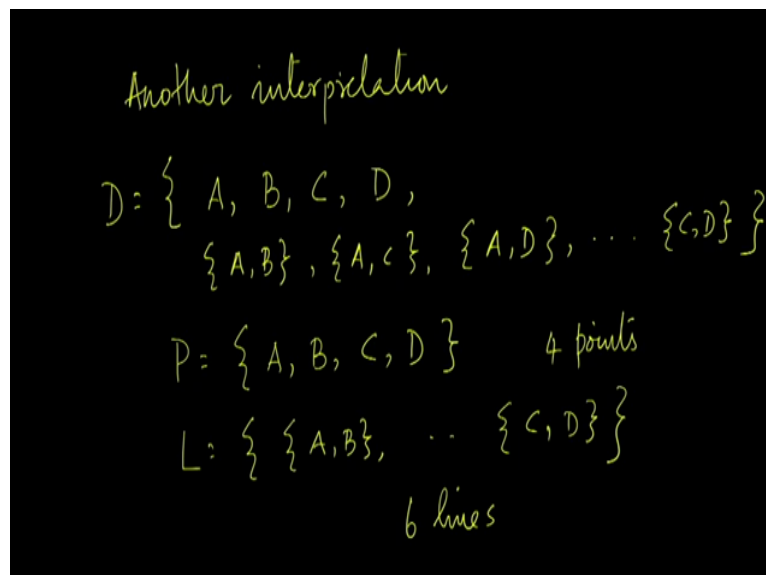 Another interpretation
D = { A, B, C, D,
{A,B}, {A,C}, {A,D}, ... {C,D} }
P = { A, B, C, D } 4 points
L = { {A,B}, .. {C,D} }
6 lines